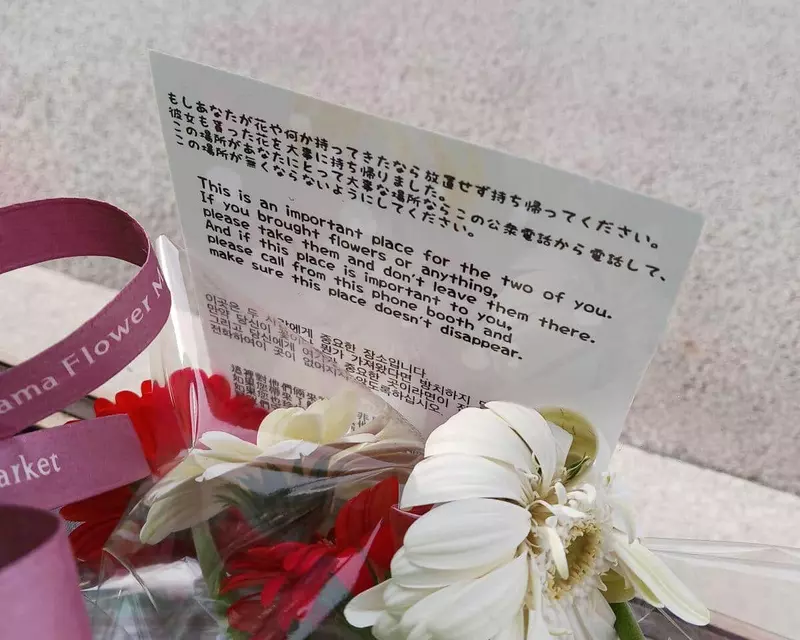 もしあなたが花や何か持ってきたなら放置せず持ち帰ってください。
彼女も貰った花を大事に持ち帰りました。
この場所があなたにとって大事な場所ならこの公衆電話から電話して、
この場所が無くならないようにしてください。
This is an important place for the two of you.
If you brought flowers or anything,
please take them and don't leave them there.
And if this place is important to you,
please call from this phone booth and
make sure this place doesn't disappear.
이곳은 두 사람에게 중요한 장소입니다
만약 당신이 꽃이나 뭔가 가져왔다면 방치하지
그리고 당신에게 여기가 중요한 곳이라면이
전화하여이 곳이 없어지지 않도록하십시오.
這裡對他們兩
如果您
如果您也
ama Flower M
arket